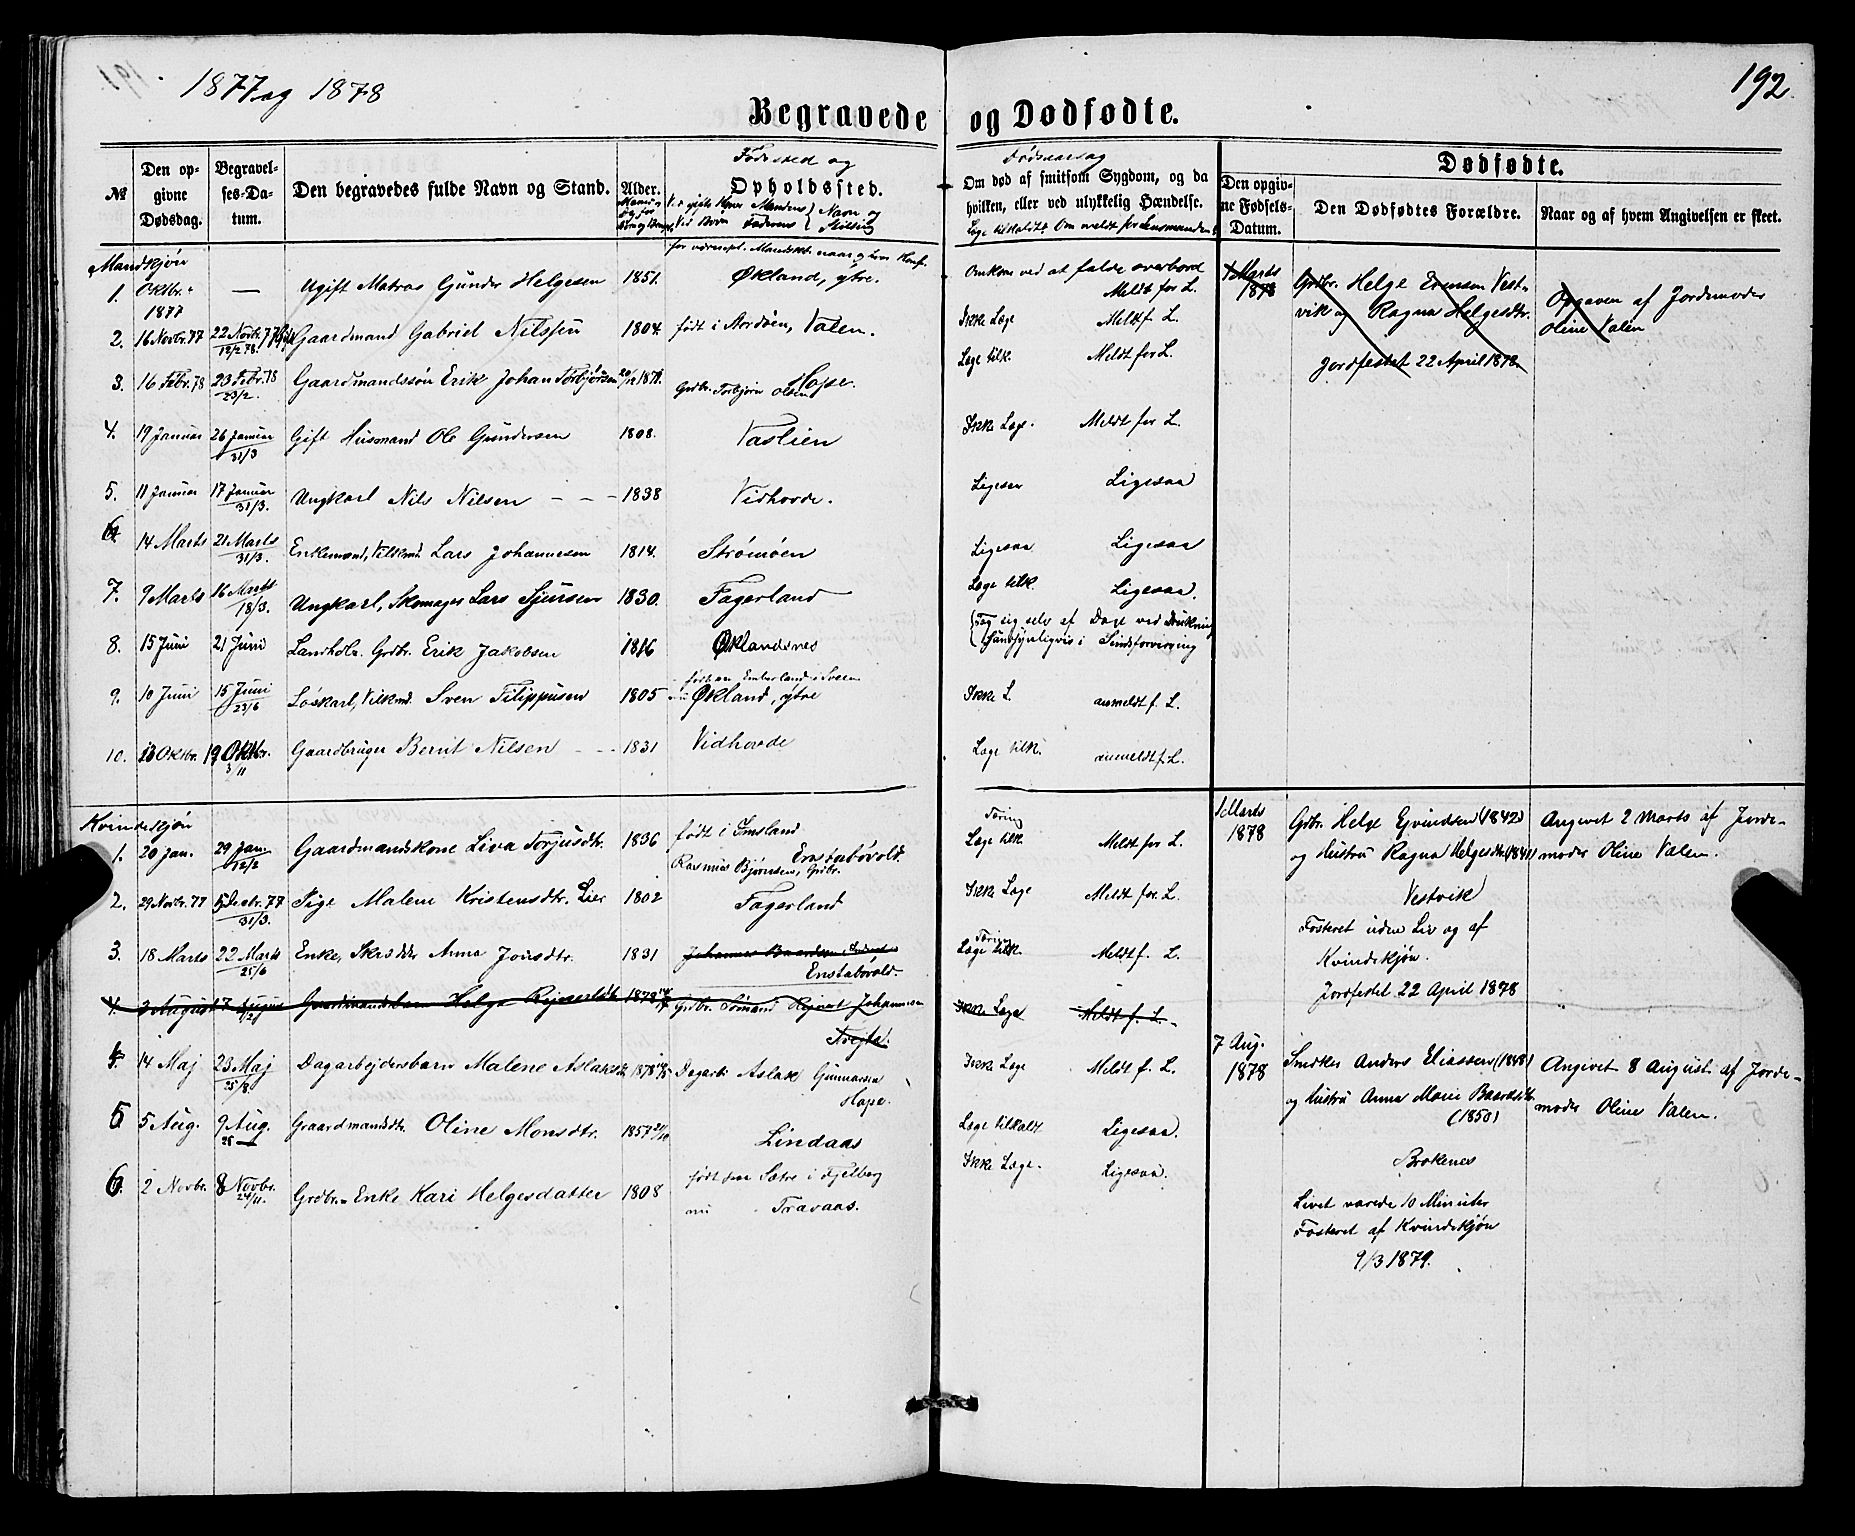 1877 og 1878
192
Begravede og Dødfødte.
№
Den opgivne Dødsdag.
Begravelses-Datum.
Den begravedes fulde Navn og Stand.
Alder.
Fødested og
Opholdssted.
V. gifte Koner Mandens Navn og
Ved Børn Faderens Stilling
Dødsaarsag
Om død af smitsom Sygdom, og da
hvilken, eller ved ulykkelig Hændelse.
Læge tilkaldt? Om meldt for Lensmanden?
Dødfødte.
Den opgivne Fødsels-Datum.
Den Dødfødtes Forældre.
Naar og af hvem Angivelsen er skeet.
Mandkjøn
1. Oktbr. 1877 — Ugift Matros Gunder Helgesen 1851. Økland, ytre. Omkom ved at falde overbord Meldt for L.
2. 16 Novbr. 77 22 Novbr. 77 12/2 78. Gaardmand Gabriel Nilssen 1804. født i Nordøen, Valen. Ikke Læge Meldt f. L.
3. 16 Febr. 78 23 Febr. 78 23/2. Gaardmandssøn Erik Johan Torbjørnsen 20/12 1871. Grdbr. Torbjørn Olsen Hope. Læge tilk. Meldt for L.
4. 19 Januar 26 Januar 31/3 Gift Husmand Ole Gundersen 1808. Vaslien Ikke Læge. Meldt for L.
5. 11 Januar 17 Januar 31/3. Ungkarl Nils Nilsen - - - 1838 Vidhovde. Ligesaa Ligesaa
6. 14 Marts 21 Marts 31/3. Enkemand, Vilkmd. Lars Johannesen 1814. Strømøen Ligesaa Ligesaa
7. 9 Marts 16 Marts 18/3. Ungkarl, Skomager Lars Sjursen 1830. Fagerland Læge tilk. Ligesaa.
8. 15 Juni 21 Juni Landholr. Grdbr. Erik Jakobsen 1816 Øklandsnes Tog sig selv af Dage ved Drukning
Sandsynligvis i Sindsforvirring
9. 10 Juni 15 Juni 23/6 Løskarl, Vilkmd. Sven Filippusen 1805 født paa Emberland i Sveen
Økland, ytre Ikke L. anmeldt f. L.
10. 13 Oktbr. 19 Oktbr. 3/11 Gaardbruger Bernt Nilsen - - 1831 Vidhovde Læge tilk. anmeldt f. L.
1 Marts 1878 Grdbr. Helge Evensen Vest-
vik og Ragna Helgesdtr.
Jordfæstet 22 April 1878.
Opgaven af Jordemoder
Oline Valen
Kvindekjøn
1. 20 Jan. 29 Jan. 12/2 Gaardmandskone Liva Torjusdtr. 1836 født i Imsland
Rasmus Bjørnsen, Grdbr. Enstabøvold. Tæring Læge tilk. Meldt for L.
2. 29 Novbr. 77 5 Decbr. 77 31/3. Pige Malene Kristensdtr. Lier 1802 Fagerland Ikke Læge Meldt for L.
3. 18 Marts 22 Marts 25/6 Enke, Skrædder Anna Jonsdtr. 1831 Johannes Baardsen,
Enstabøvold. Tæring Læge tilk. Meldt f. L.
4. 3 August 7 August Gaardmandsbarn Helga Rejnertsdtr. 1878 Grdbr. Sømand Rejnert Johannesen
Ikke Læge Meldt f. L.
4. 14 Maj 23 Maj 25/8. Dagarbejdersbarn Malene Aslaksdtr. 1878 Dagarb. Aslak Gunnarsen
Hope. Ikke Læge Meldt f. L.
5 5 Aug. 9 Aug. 25 Gaardmandsdtr. Oline Monsdtr. 1857 Lindaas Læge tilkaldt Ligesaa.
6. 2 Novbr. 8 Novbr. 24/11. Grdbr. Enke Kari Helgesdatter 1808 født paa Sætre i Fjelberg
nu Travaas. Ikke Læge. Ligesaa.
1 Marts 1878 Grdbr. Helge Ejvindsen (1842)
og Hustru Ragna Helgesdtr. (1841)
Vestvik
Fosteret uden Liv og af
Kvindekjøn.
Jordfestet 22 April 1878
Angivet 2 Marts af Jorde-
moder Oline Valen.
7 Aug. 1878 Snedker Anders Eliassen (1848)
og Hustru Anna Marie Baardsdtr.
(1850)
Brokenes
Livet varede 10 Minuter
Fosteret af Kvindekjøn
9/3 1879.
Angivet 8 August af Jorde-
moder Oline Valen.